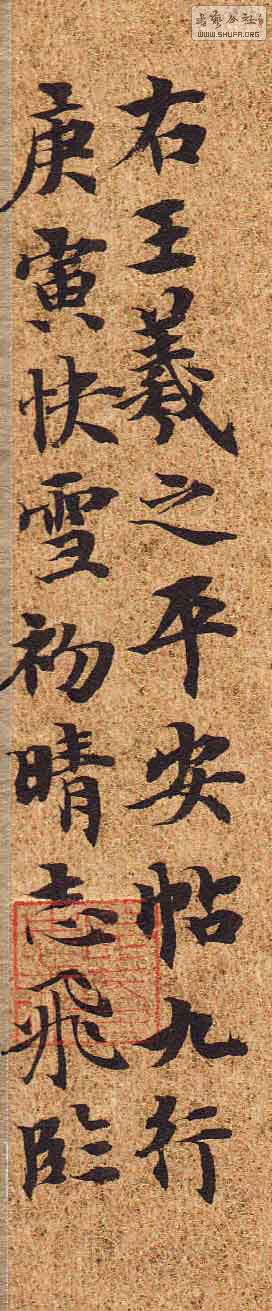 右王羲之平安帖九行
庚寅快雪初晴志飛臨
书艺公社
WWW.SHUFA.ORG